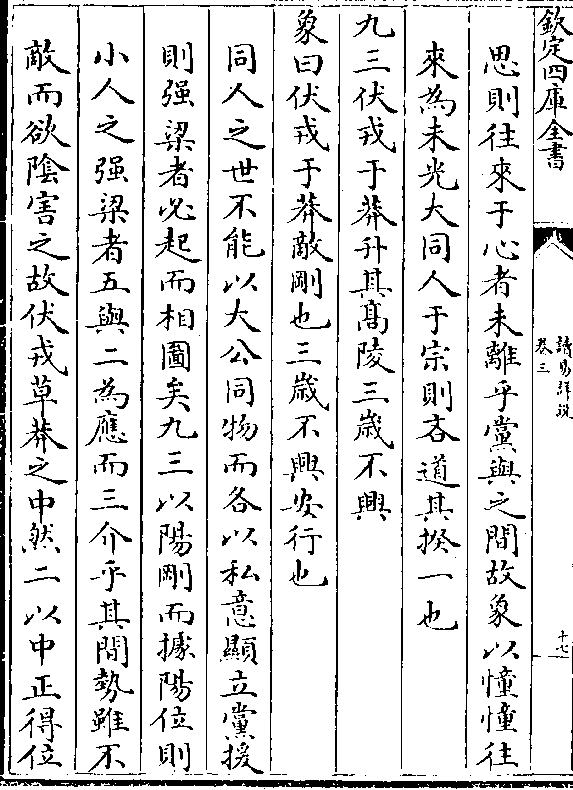 欽定四庫全書
讀易詳說
卷三
十七
思則往來于心者未離乎黨與之間故象以憧憧往
來為未光大同人于宗則吝道其揆一也
九三伏戎于莽升其髙陵三歲不興
象曰伏戎于莽敵剛也三歲不興安行也
同人之世不能以大公同物而各以私意顯立黨援
則强梁者必起而相圖矣九三以陽剛而據陽位則
小人之强梁者五與二為應而三介乎其間勢雖不
敵而欲陰害之故伏戎草莽之中然二以中正得位